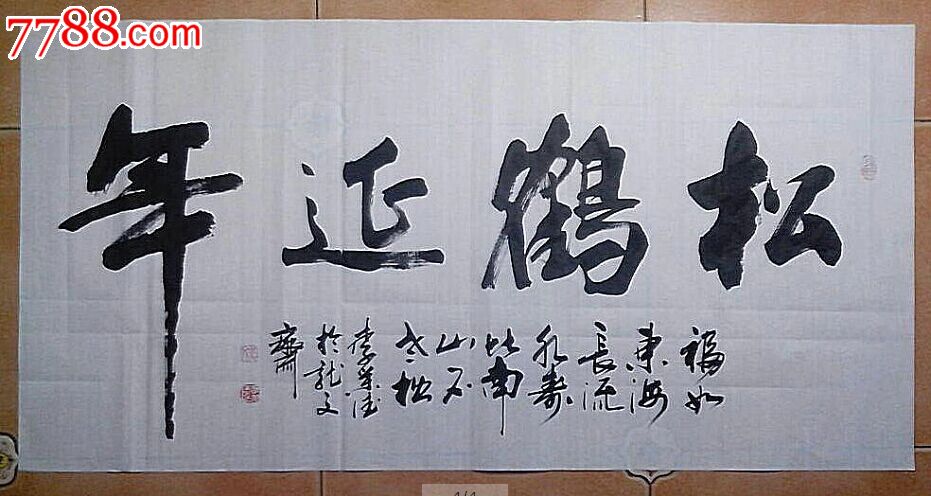 7788.com
松鶴延年
福如
東海
長流
水壽
比南
山不
老松
李
於龙文
齋